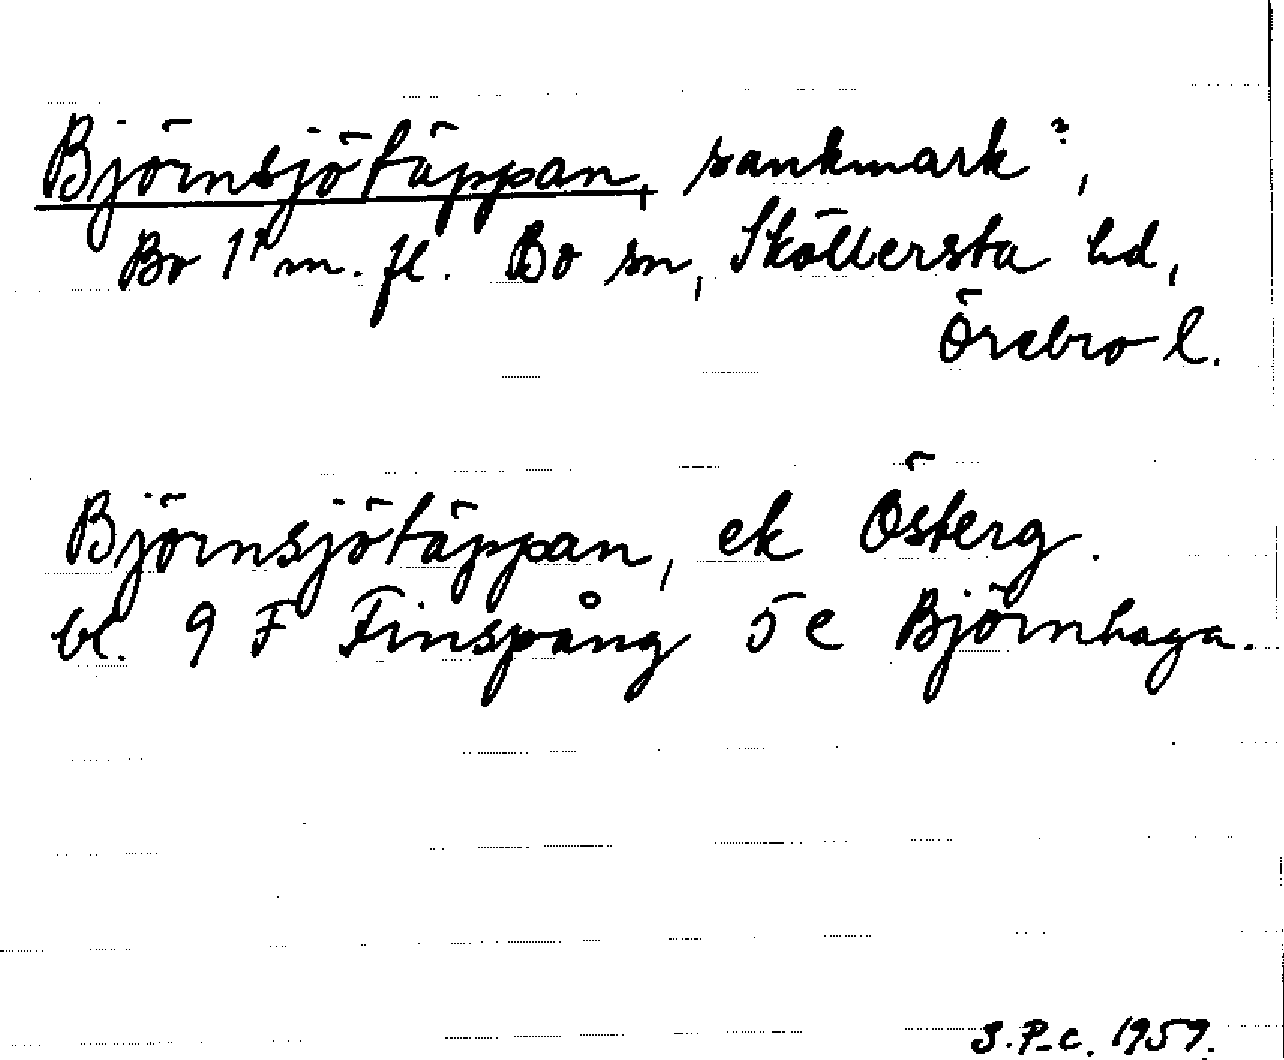 Björnsjötäppan, sankmark?,
Bo 1¹ m. fl. Bo sn, Sköllersta hd,
Örebro l.
Björnsjötäppan, ek Österg.
bl. 9 F Finspång 5 e Björnhaga.
S.P-c. 1959.